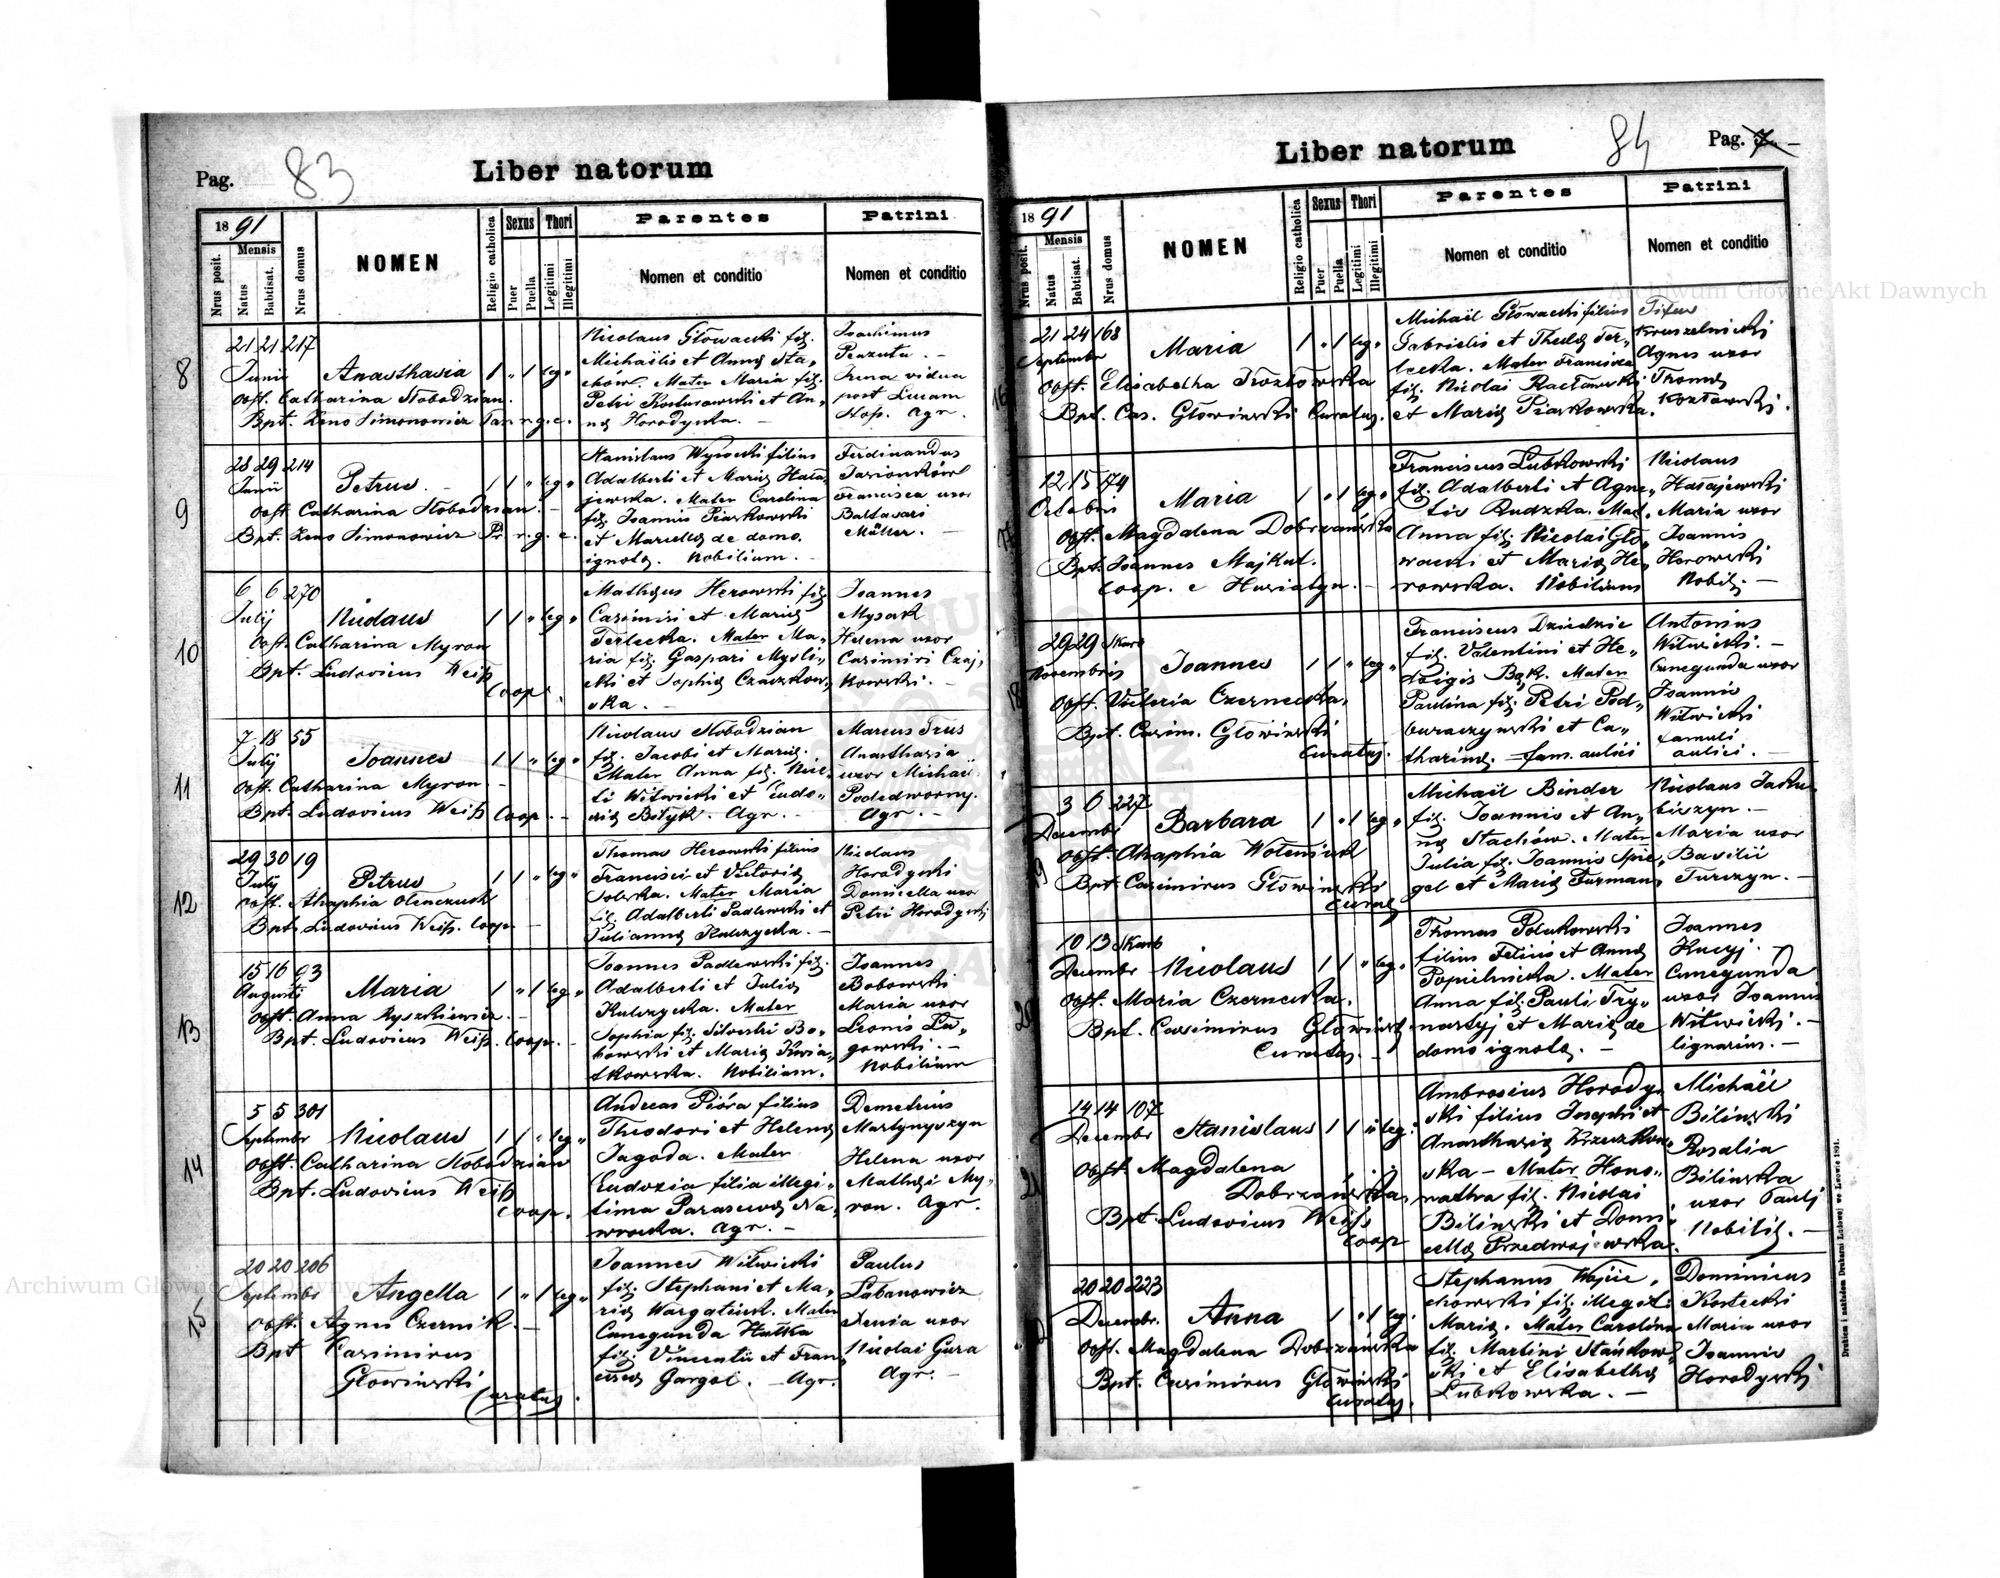 Pag. 83
Liber natorum
18 91
Nrus posit.
Mensis
Natus
Babtisat.
Nrus domus
NOMEN
Religio catholica
Sexus
Puer
Puella
Thori
Legitimi
Illegitimi
Parentes
Nomen et conditio
Patrini
Nomen et conditio
8
21 21 217
Junii
Anasthasia 1 „ 1 leg „
Obst. Catharina Słobodzian.
Bpt. Zeno Simonowicz Par. r. g. c.
Nicolaus Głowacki fil.
Michaëlis et Annę Sta„
chów. Mater Maria fil.
Petri Kosturowski et An„
nę Horodyska. —
Joachimus
Irena vidua
post Lucam
Agr.
9
28 29 214
Junii
Petrus. — 1 1 „ leg „
Obst. Catharina Słobodzian. —
Bpt. Zeno Simonowicz Pr. r. g. c.
Stanislaus Wysocki filius
Adalberti et Marię Hała„
jewska. Mater Carolina
fil. Joannis Piaskowski
et Marcellę de domo
ignotę. Nobilium. —
Ferdinandus
Francisca uxor
Baltasari
Müller. —
10
6 6 270
Julij
Nicolaus 1 1 „ leg „
Obst. Catharina Myron
Bpt. Ludovicus Weiß
Coop.
Mathęus Herowski fil.
Casimiri et Marię
Terlecka. Mater Ma„
ria fil. Gaspari Mysli„
cki et Sophię Czaczkow„
ska. —
Joannes
Mysak
Helena uxor
Casimiri Czaj„
kowski. —
11
7 18 55
Julij
Joannes 1 1 „ leg „
Obst. Catharina Myron. —
Bpt. Ludovicus Weiß Coop. —
Nicolaus Słobodzian
fil. Jacobi et Marię.
Mater Anna fil. Nico„
li Witwicki et Eudo„
xię Bołyk. Agr. —
Marcus Trus
Anasthasia
uxor Michaël
Podedworny.
Agr. —
12
29 30 19
Julij
Petrus 1 1 „ leg „
Obst. Ahaphia Ołenczuk
Bpt. Ludovicus Weiß. Coop —
Thomas Herowski filius
Francisci et Victorię
Solecka. Mater Maria
fil. Adalberti Padlewski et
Juliannę Kulczycka. —
Nicolaus
Horodyski
Domicella uxor
Petri Horodyski
13
15 16 93
Augusti
Maria 1 „ 1 leg „
Obst. Anna Ryszkiewicz. —
Bpt. Ludovicus Weiß. Coop. —
Joannes Padlewski fil.
Adalberti et Julię
Kulczycka. Mater
Sophia fil. Silvestri Bo„
bowski et Marię Kwia„
tkowska. Nobilium.
Joannes
Bobowski
Maria uxor
Leonis Ła„
gowski. —
Nobilium
14
5 5 301
Septembr
Nicolaus 1 1 „ leg „
Obst. Catharina Słobodzian
Bpt. Ludovicus Weiß
Coop.
Andreas Pióra filius
Theodori et Helenę
Jagoda. Mater
Eudoxia filia illegi„
tima Parascevę Na„
wrocka. Agr. —
Demetrius
Martynyszyn
Helena uxor
Mathęi My„
ron. Agr.
15
20 20 206
Septembr
Angella 1 „ 1 leg „
Obst. Agnes Czernik. —
Bpt Casimirus
Głowiński
Curatus.
Joannes Witwicki
fil. Stephani et Ma„
rię Margatiuk. Mater
Cunegunda Hałka
fil. Vincentii et Fran„
ciscę Gargol. — Agr.
Paulus
Łabanowicz
Xenia uxor
Nicolai Gura
Agr. —
Liber natorum
84
Pag. 7
18 91
Nrus posit.
Mensis
Natus
Babtisat.
Nrus domus
NOMEN
Religio catholica
Sexus
Puer
Puella
Thori
Legitimi
Illegitimi
Parentes
Nomen et conditio
Patrini
Nomen et conditio
16
21 24 168
Septembr
Maria 1 „ 1 leg „
Obst. Elisabetha Kozłowska
Bpt. Cas. Głowiński Curatus.
Michaël Głowacki filius
Gabrielis et Theclę Ter„
lecka. Mater Francisca
fil. Nicolai Racławski
et Marię Piaskowska.
Titus
Kruszelnicki
Agnes uxor
Thomę
Kozłowski.
17
12 15 174
Octobris
Maria 1 „ 1 leg „
Obst. Magdalena Dobrzańska
Bpt. Joannes Majkut.
Coop. e Husiatyn. —
Franciscus Lubkowski
fil. Adalberti et Agne„
tis Rudzka. Mat.
Anna fil. Nicolai Gło„
wacki et Marię He„
rowska. Nobilium
Nicolaus
Hałajewski
Maria uxor
Joannis
Horowski
Nobil. —
18
29 29 Skarb
Novembris
Joannes 1 1 „ leg „
Obst. Victoria Czernecka.
Bpt. Casim. Głowiński
Curatus.
Franciscus Dziedzic
fil. Valentini et He„
dvigis Bąk. Mater
Paulina fil. Petri Pod„
buraczynski et Ca„
tharinę. — fam. aulici
Antonius
Witwicki. —
Cunegunda uxor
Joannis
Witwicki
famuli
aulici. —
19
3 6 227
Decembr
Barbara 1 „ 1 leg „
Obst. Ahaphia Wołeniuk
Bpt. Casimirus Głowiński
Curat.
Michaël Binder
fil. Joannis et An„
nę Stachów. Mater
Julia fil. Joannis Spie„
gel et Marię Furman.
Nicolaus Jaku„
biszyn. —
Maria uxor
Basilii
Turczyn. —
20
10 13 Skarb
Decembr
Nicolaus 1 1 „ leg „
Obst. Maria Czernecka.
Bpt. Casimirus Głowiński
Curatus. —
Thomas Polukowski
filius Felicis et Annę
Popielnicka. Mater
Anna fil. Pauli Try„
nastyj et Marię de
domo ignotę. —
Joannes
Kucyj. —
Cunegunda
uxor Joannis
Witwicki. —
lignarius. —
21
14 14 107
Decembr
Stanislaus 1 1 „ leg.
Obst. Magdalena
Dobrzańska.
Bpt. Ludovicus Weiß
Coop
Ambrosius Horody„
ski filius Josephi et
Anasthasię Krzeczkow„
ska — Mater Hono„
ratha fil. Nicolai
Biliński et Domi„
cellę Przedwojewska.
Michaël
Biliński
Rosalia
Bilińska
uxor Pauli
Nobilij. —
20 20 223
Decembr.
Anna 1 „ 1 leg.
Obst. Magdalena Dobrzańska
Bpt. Casimirus Głowiński
Curatus.
Stephanus Wojcie„
chowski fil. illegit.
Marię. Mater Carolina
fil. Martini Stankow„
ski et Elisabethę
Lubkowska. —
Dominicus
Kostecki
Maria uxor
Joannis
Horodyski
Drukiem i nakładem Drukarni Ludowej we Lwowie 1891.
Archiwum Główne Akt Dawnych
Archiwum Główne Akt Dawnych